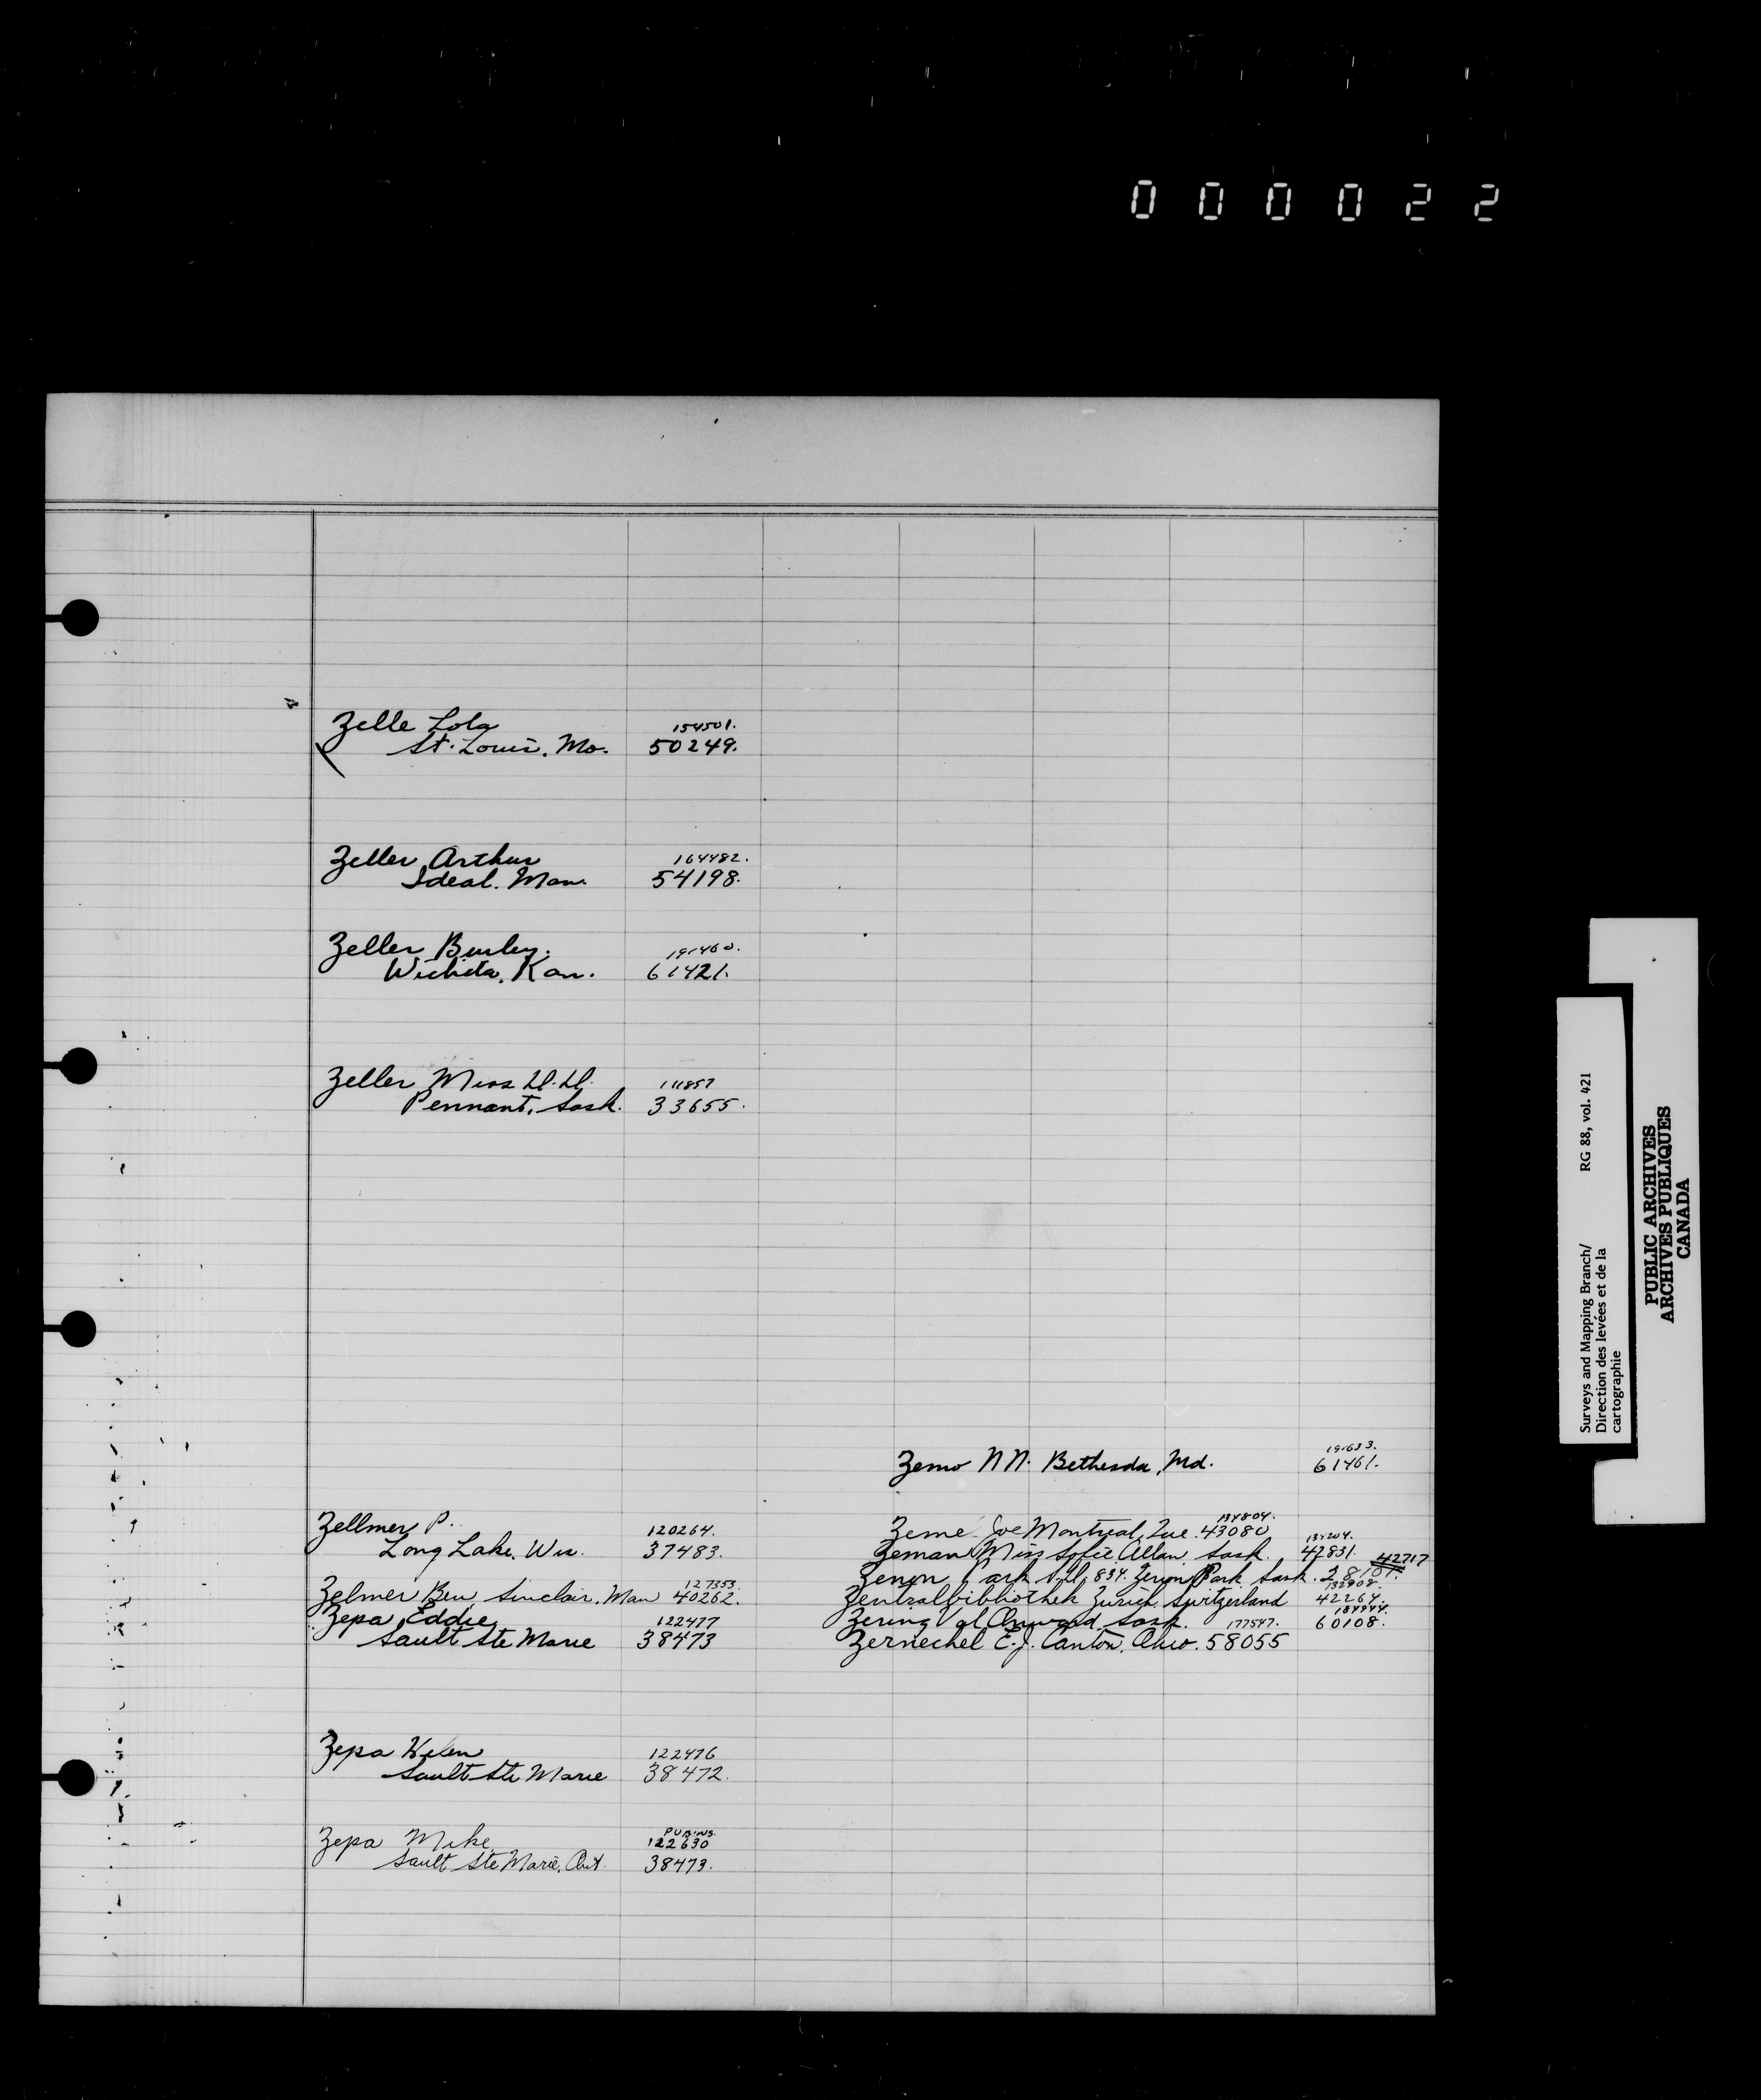 000022
Zelle Lola 154501.
St. Louis. Mo. 50249.
Zeller Arthur 164482.
Ideal. Man. 54198.
Zeller Burley. 191460.
Wichita. Kan. 61421.
Zeller Miss 111857
Pennant, Sask. 33655.
Zemo N.N. Bethesda, Md. 61461.
Zellmer P. 120264.
Long Lake. Wis. 37483.
Zelmer Ben Sinclair. Man 127353. 40262.
Zepa Eddie 122477
Sault Ste Marie 38473
Zepa Helen 122476
Sault Ste Marie 38472.
Zepa Mike 122630
Sault Ste Marie, Ont. 38473.
Zeme Joe Montreal, Que. 134804. 43080
Zeman Miss Sofie Allan. Sask. 134204. 42831.
Zenon Park S.D. 834. Zenon Park Sask. 42717
Zentralbibliothek Zurich Switzerland 132908. 42264.
Zering Val Onward. Sask. 60108.
Zernechel E.J. Canton, Ohio. 177547. 58055
Surveys and Mapping Branch/ RG 88, vol. 421
Direction des levées et de la
cartographie
PUBLIC ARCHIVES
ARCHIVES PUBLIQUES
CANADA